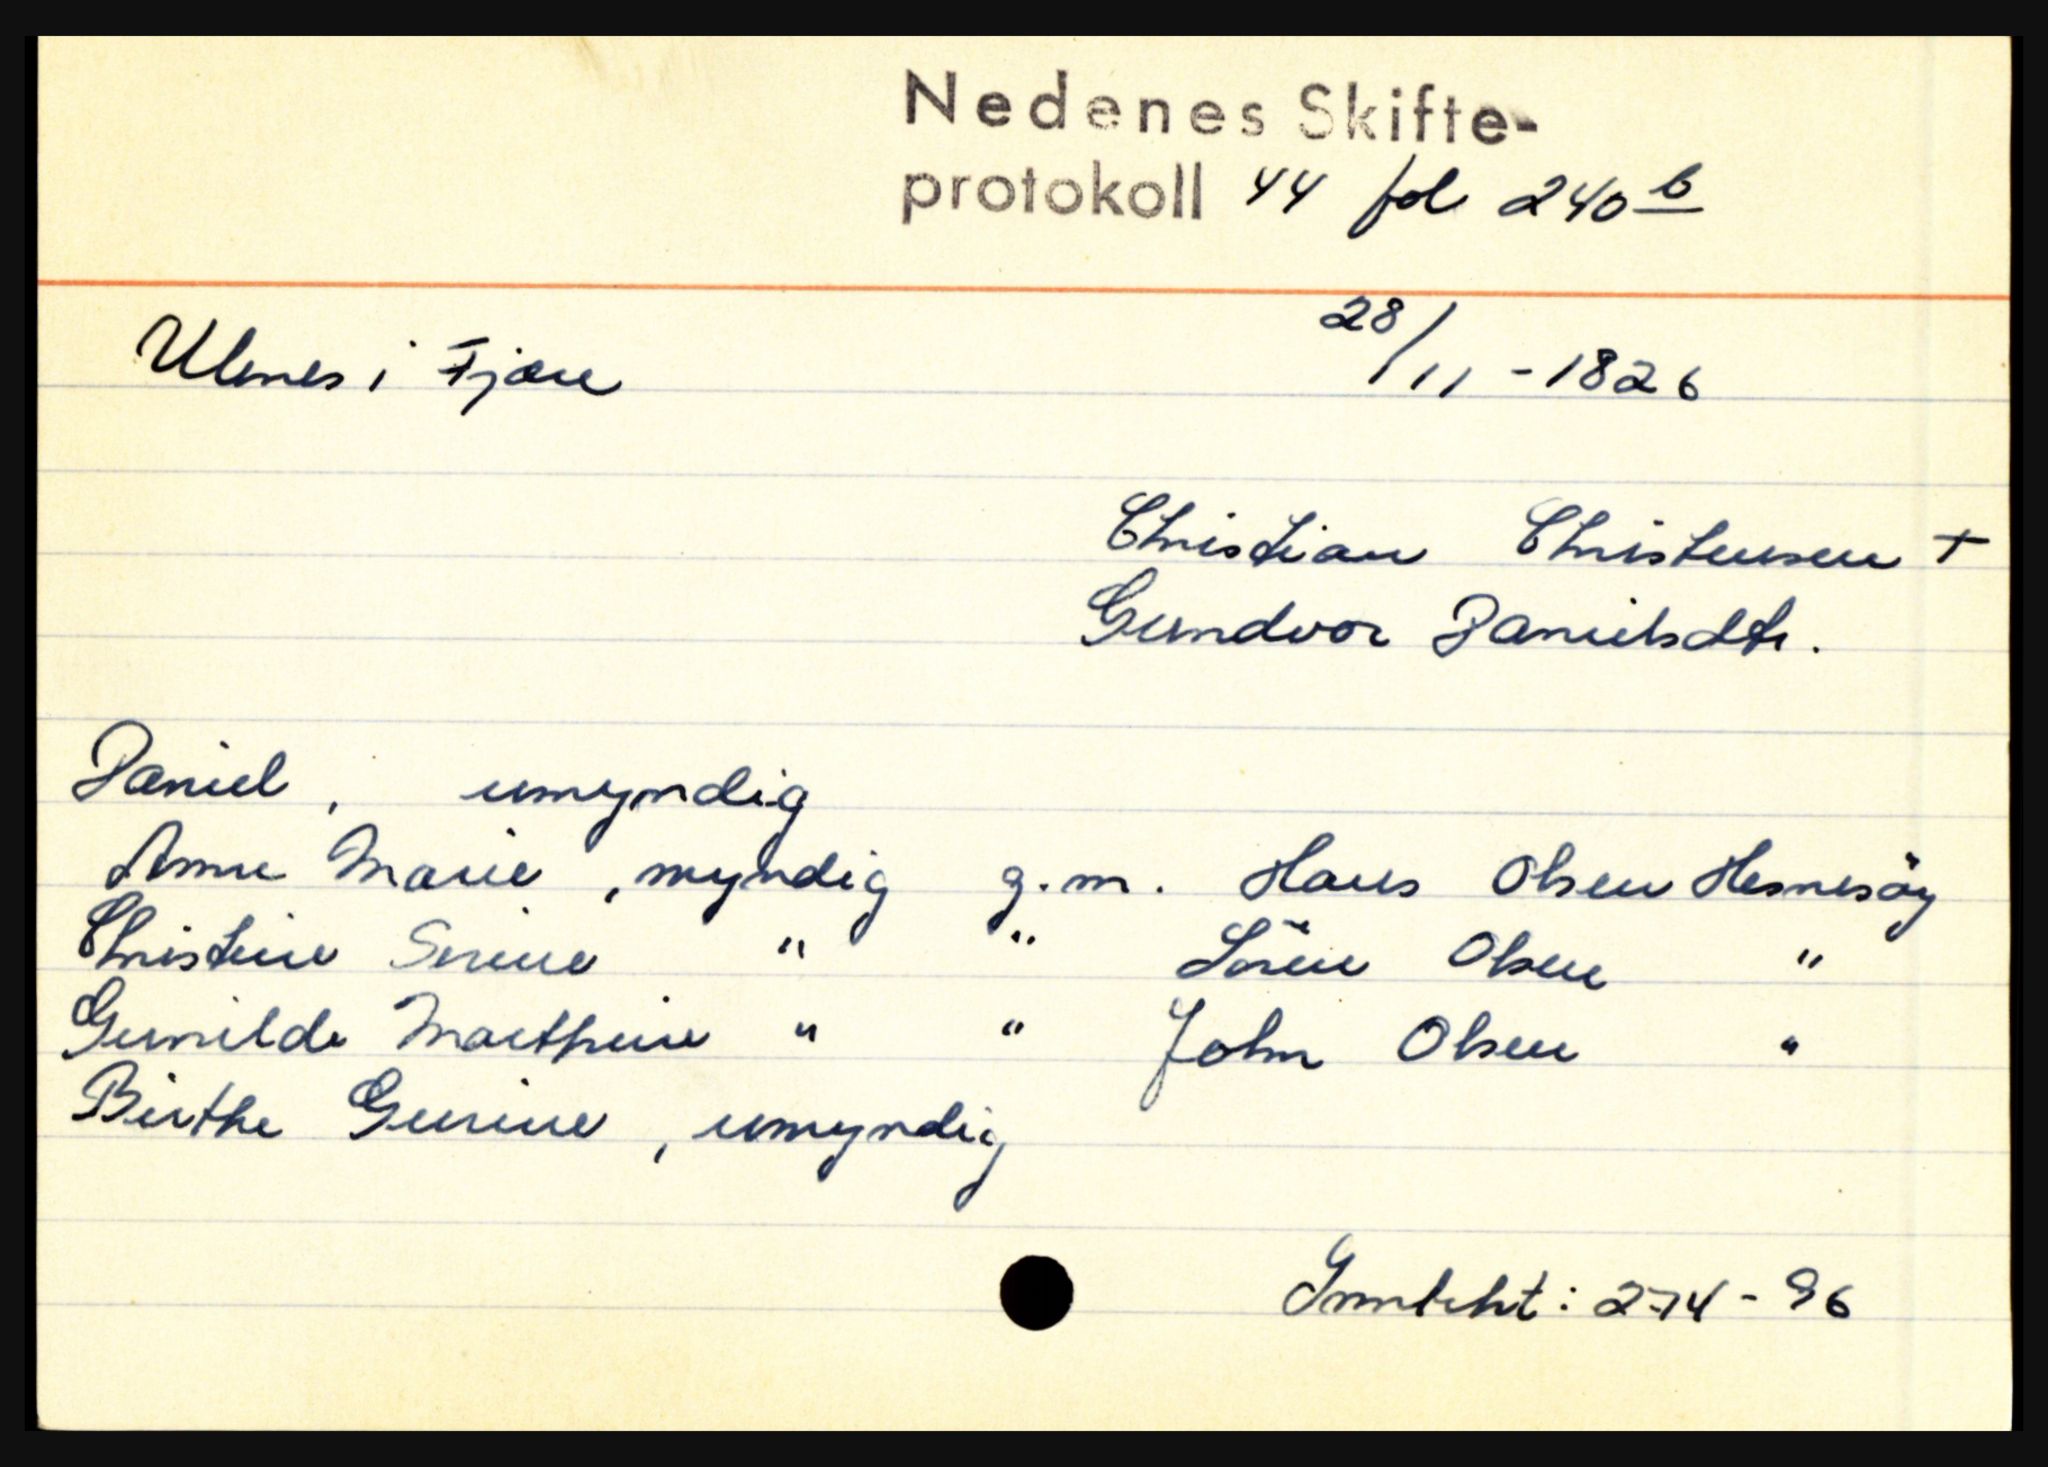 Nedenes Skifte-
protokoll 44 fol 240 b
Ulenes i Fjære 28/11 - 1826
Christian Christensen +
Gundvor Danielsdtr.
Daniel, umyndig
Anne Marie, myndig g.m. Hans Olsen Hesnesöy
Christine Serine " " Sören Olsen "
Gunilde Marthine " " John Olsen "
Birthe Gurine, umyndig
Innbrht: 274 - 96